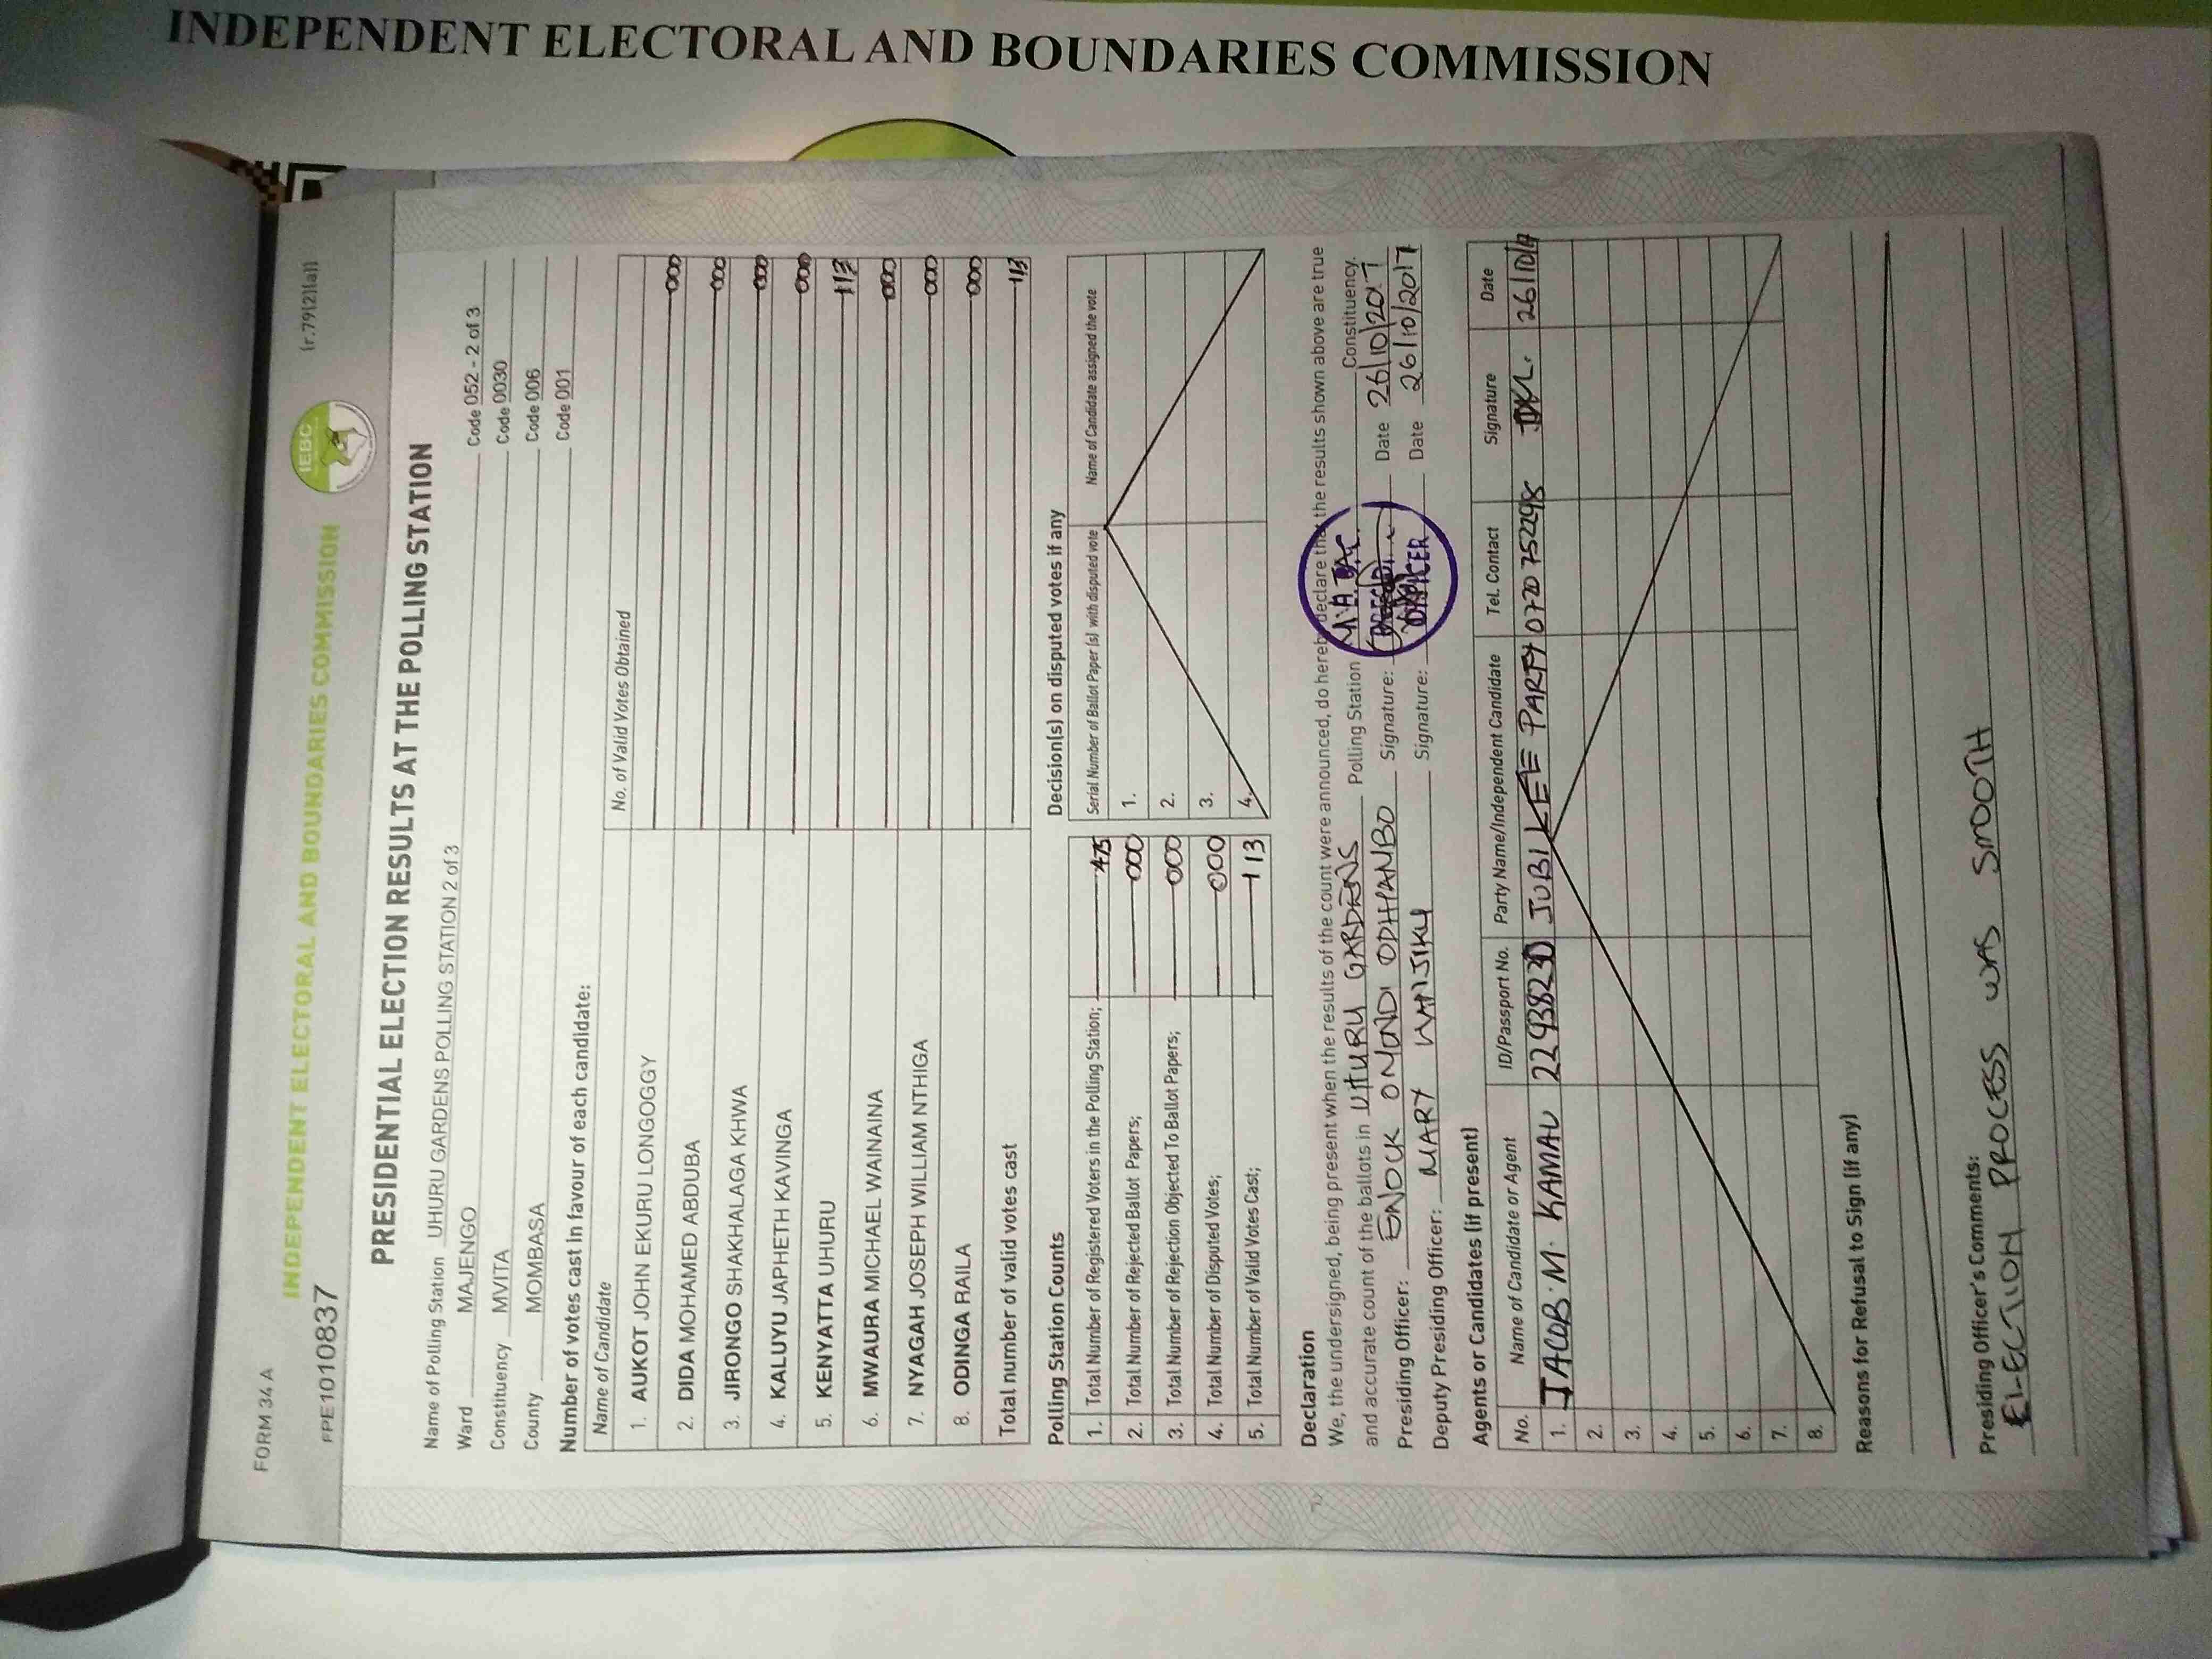 INDEPENDENT ELECTORAL AND BOUNDARIES COMMISSION
FORM 34 A
(r.79(2)(a))
INDEPENDENT ELECTORAL AND BOUNDARIES COMMISSION
IEBC
PPE1010837
PRESIDENTIAL ELECTION RESULTS AT THE POLLING STATION
Name of Polling Station UHURU GARDENS POLLING STATION 2 of 3 Code 052 - 2 of 3
Ward MAJENGO Code 0030
Constituency MVITA Code 006
County MOMBASA Code 001
Number of votes cast in favour of each candidate:
Name of Candidate No. of Valid Votes Obtained
1. AUKOT JOHN EKURU LONGOGGY 000
2. DIDA MOHAMED ABDUBA 000
3. JIRONGO SHAKHALAGA KHWA 000
4. KALUYU JAPHETH KAVINGA 000
5. KENYATTA UHURU 113
6. MWAURA MICHAEL WAINAINA 000
7. NYAGAH JOSEPH WILLIAM NTHIGA 000
8. ODINGA RAILA 000
Total number of valid votes cast 113
Polling Station Counts
1. Total Number of Registered Voters in the Polling Station; 475
2. Total Number of Rejected Ballot Papers; 000
3. Total Number of Rejection Objected To Ballot Papers; 000
4. Total Number of Disputed Votes; 000
5. Total Number of Valid Votes Cast; 113
Decision(s) on disputed votes if any
Serial Number of Ballot Paper (s) with disputed vote Name of Candidate assigned the vote
1.
2.
3.
4.
Declaration
We, the undersigned, being present when the results of the count were announced, do hereby declare that the results shown above are true
and accurate count of the ballots in UHURU GARDENS Polling Station Constituency.
Presiding Officer: ENOCK OMONDI ODHIAMBO Signature: Date 26/10/2017
Deputy Presiding Officer: MARY WANJIKU Signature: Date 26/10/2017
OFFICER
Agents or Candidates (if present)
No. Name of Candidate or Agent ID/Passport No. Party Name/Independent Candidate Tel. Contact Signature Date
1. JACOB . M . KAMAU JUBILEE PARTY 0720752298 26/10/17
2.
3.
4.
5.
6.
7.
8.
Reasons for Refusal to Sign (if any)
Presiding Officer's Comments:
ELECTION PROCESS WAS SMOOTH